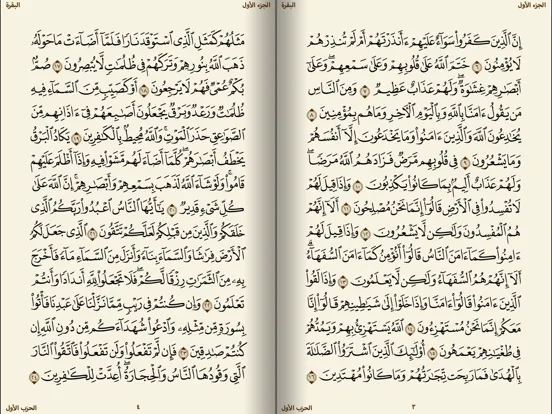 الجزء الأول
البقرة
إِنَّ ٱلَّذِينَ كَفَرُوا۟ سَوَآءٌ عَلَيْهِمْ ءَأَنذَرْتَهُمْ أَمْ لَمْ تُنذِرْهُمْ
لَا يُؤْمِنُونَ ٦ خَتَمَ ٱللَّهُ عَلَىٰ قُلُوبِهِمْ وَعَلَىٰ سَمْعِهِمْ ۖ وَعَلَىٰٓ
أَبْصَٰرِهِمْ غِشَٰوَةٌ ۖ وَلَهُمْ عَذَابٌ عَظِيمٌ ٧ وَمِنَ ٱلنَّاسِ
مَن يَقُولُ ءَامَنَّا بِٱللَّهِ وَبِٱلْيَوْمِ ٱلْءَاخِرِ وَمَا هُم بِمُؤْمِنِينَ ٨
يُخَٰدِعُونَ ٱللَّهَ وَٱلَّذِينَ ءَامَنُوا۟ وَمَا يَخْدَعُونَ إِلَّآ أَنفُسَهُمْ
وَمَا يَشْعُرُونَ ٩ فِى قُلُوبِهِم مَّرَضٌ فَزَادَهُمُ ٱللَّهُ مَرَضًا ۖ
وَلَهُمْ عَذَابٌ أَلِيمٌۢ بِمَا كَانُوا۟ يَكْذِبُونَ ١٠ وَإِذَا قِيلَ لَهُمْ
لَا تُفْسِدُوا۟ فِى ٱلْأَرْضِ قَالُوٓا۟ إِنَّمَا نَحْنُ مُصْلِحُونَ ١١ أَلَآ إِنَّهُمْ
هُمُ ٱلْمُفْسِدُونَ وَلَٰكِن لَّا يَشْعُرُونَ ١٢ وَإِذَا قِيلَ لَهُمْ
ءَامِنُوا۟ كَمَآ ءَامَنَ ٱلنَّاسُ قَالُوٓا۟ أَنُؤْمِنُ كَمَآ ءَامَنَ ٱلسُّفَهَآءُ ۗ
أَلَآ إِنَّهُمْ هُمُ ٱلسُّفَهَآءُ وَلَٰكِن لَّا يَعْلَمُونَ ١٣ وَإِذَا لَقُوا۟
ٱلَّذِينَ ءَامَنُوا۟ قَالُوٓا۟ ءَامَنَّا وَإِذَا خَلَوْا۟ إِلَىٰ شَيَٰطِينِهِمْ قَالُوٓا۟ إِنَّا
مَعَكُمْ إِنَّمَا نَحْنُ مُسْتَهْزِءُونَ ١٤ ٱللَّهُ يَسْتَهْزِئُ بِهِمْ وَيَمُدُّهُمْ
فِى طُغْيَٰنِهِمْ يَعْمَهُونَ ١٥ أُو۟لَٰٓئِكَ ٱلَّذِينَ ٱشْتَرَوُا۟ ٱلضَّلَٰلَةَ
بِٱلْهُدَىٰ فَمَا رَبِحَت تِّجَٰرَتُهُمْ وَمَا كَانُوا۟ مُهْتَدِينَ ١٦
٣
الحزب الأول
الجزء الأول
البقرة
مَثَلُهُمْ كَمَثَلِ ٱلَّذِى ٱسْتَوْقَدَ نَارًا فَلَمَّآ أَضَآءَتْ مَا حَوْلَهُۥ
ذَهَبَ ٱللَّهُ بِنُورِهِمْ وَتَرَكَهُمْ فِى ظُلُمَٰتٍ لَّا يُبْصِرُونَ ١٧ صُمٌّۢ
بُكْمٌ عُمْىٌ فَهُمْ لَا يَرْجِعُونَ ١٨ أَوْ كَصَيِّبٍ مِّنَ ٱلسَّمَآءِ فِيهِ
ظُلُمَٰتٌ وَرَعْدٌ وَبَرْقٌ يَجْعَلُونَ أَصَٰبِعَهُمْ فِىٓ ءَاذَانِهِم مِّنَ
ٱلصَّوَٰعِقِ حَذَرَ ٱلْمَوْتِ ۚ وَٱللَّهُ مُحِيطٌۢ بِٱلْكَٰفِرِينَ ١٩ يَكَادُ ٱلْبَرْقُ
يَخْطَفُ أَبْصَٰرَهُمْ ۖ كُلَّمَآ أَضَآءَ لَهُم مَّشَوْا۟ فِيهِ وَإِذَآ أَظْلَمَ عَلَيْهِمْ
قَامُوا۟ ۚ وَلَوْ شَآءَ ٱللَّهُ لَذَهَبَ بِسَمْعِهِمْ وَأَبْصَٰرِهِمْ ۚ إِنَّ ٱللَّهَ عَلَىٰ
كُلِّ شَىْءٍ قَدِيرٌ ٢٠ يَٰٓأَيُّهَا ٱلنَّاسُ ٱعْبُدُوا۟ رَبَّكُمُ ٱلَّذِى
خَلَقَكُمْ وَٱلَّذِينَ مِن قَبْلِكُمْ لَعَلَّكُمْ تَتَّقُونَ ٢١ ٱلَّذِى جَعَلَ لَكُمُ
ٱلْأَرْضَ فِرَٰشًا وَٱلسَّمَآءَ بِنَآءً وَأَنزَلَ مِنَ ٱلسَّمَآءِ مَآءً فَأَخْرَجَ
بِهِۦ مِنَ ٱلثَّمَرَٰتِ رِزْقًا لَّكُمْ ۖ فَلَا تَجْعَلُوا۟ لِلَّهِ أَندَادًا وَأَنتُمْ
تَعْلَمُونَ ٢٢ وَإِن كُنتُمْ فِى رَيْبٍ مِّمَّا نَزَّلْنَا عَلَىٰ عَبْدِنَا فَأْتُوا۟
بِسُورَةٍ مِّن مِّثْلِهِۦ وَٱدْعُوا۟ شُهَدَآءَكُم مِّن دُونِ ٱللَّهِ إِن
كُنتُمْ صَٰدِقِينَ ٢٣ فَإِن لَّمْ تَفْعَلُوا۟ وَلَن تَفْعَلُوا۟ فَٱتَّقُوا۟ ٱلنَّارَ
ٱلَّتِى وَقُودُهَا ٱلنَّاسُ وَٱلْحِجَارَةُ ۖ أُعِدَّتْ لِلْكَٰفِرِينَ ٢٤
٤
الحزب الأول